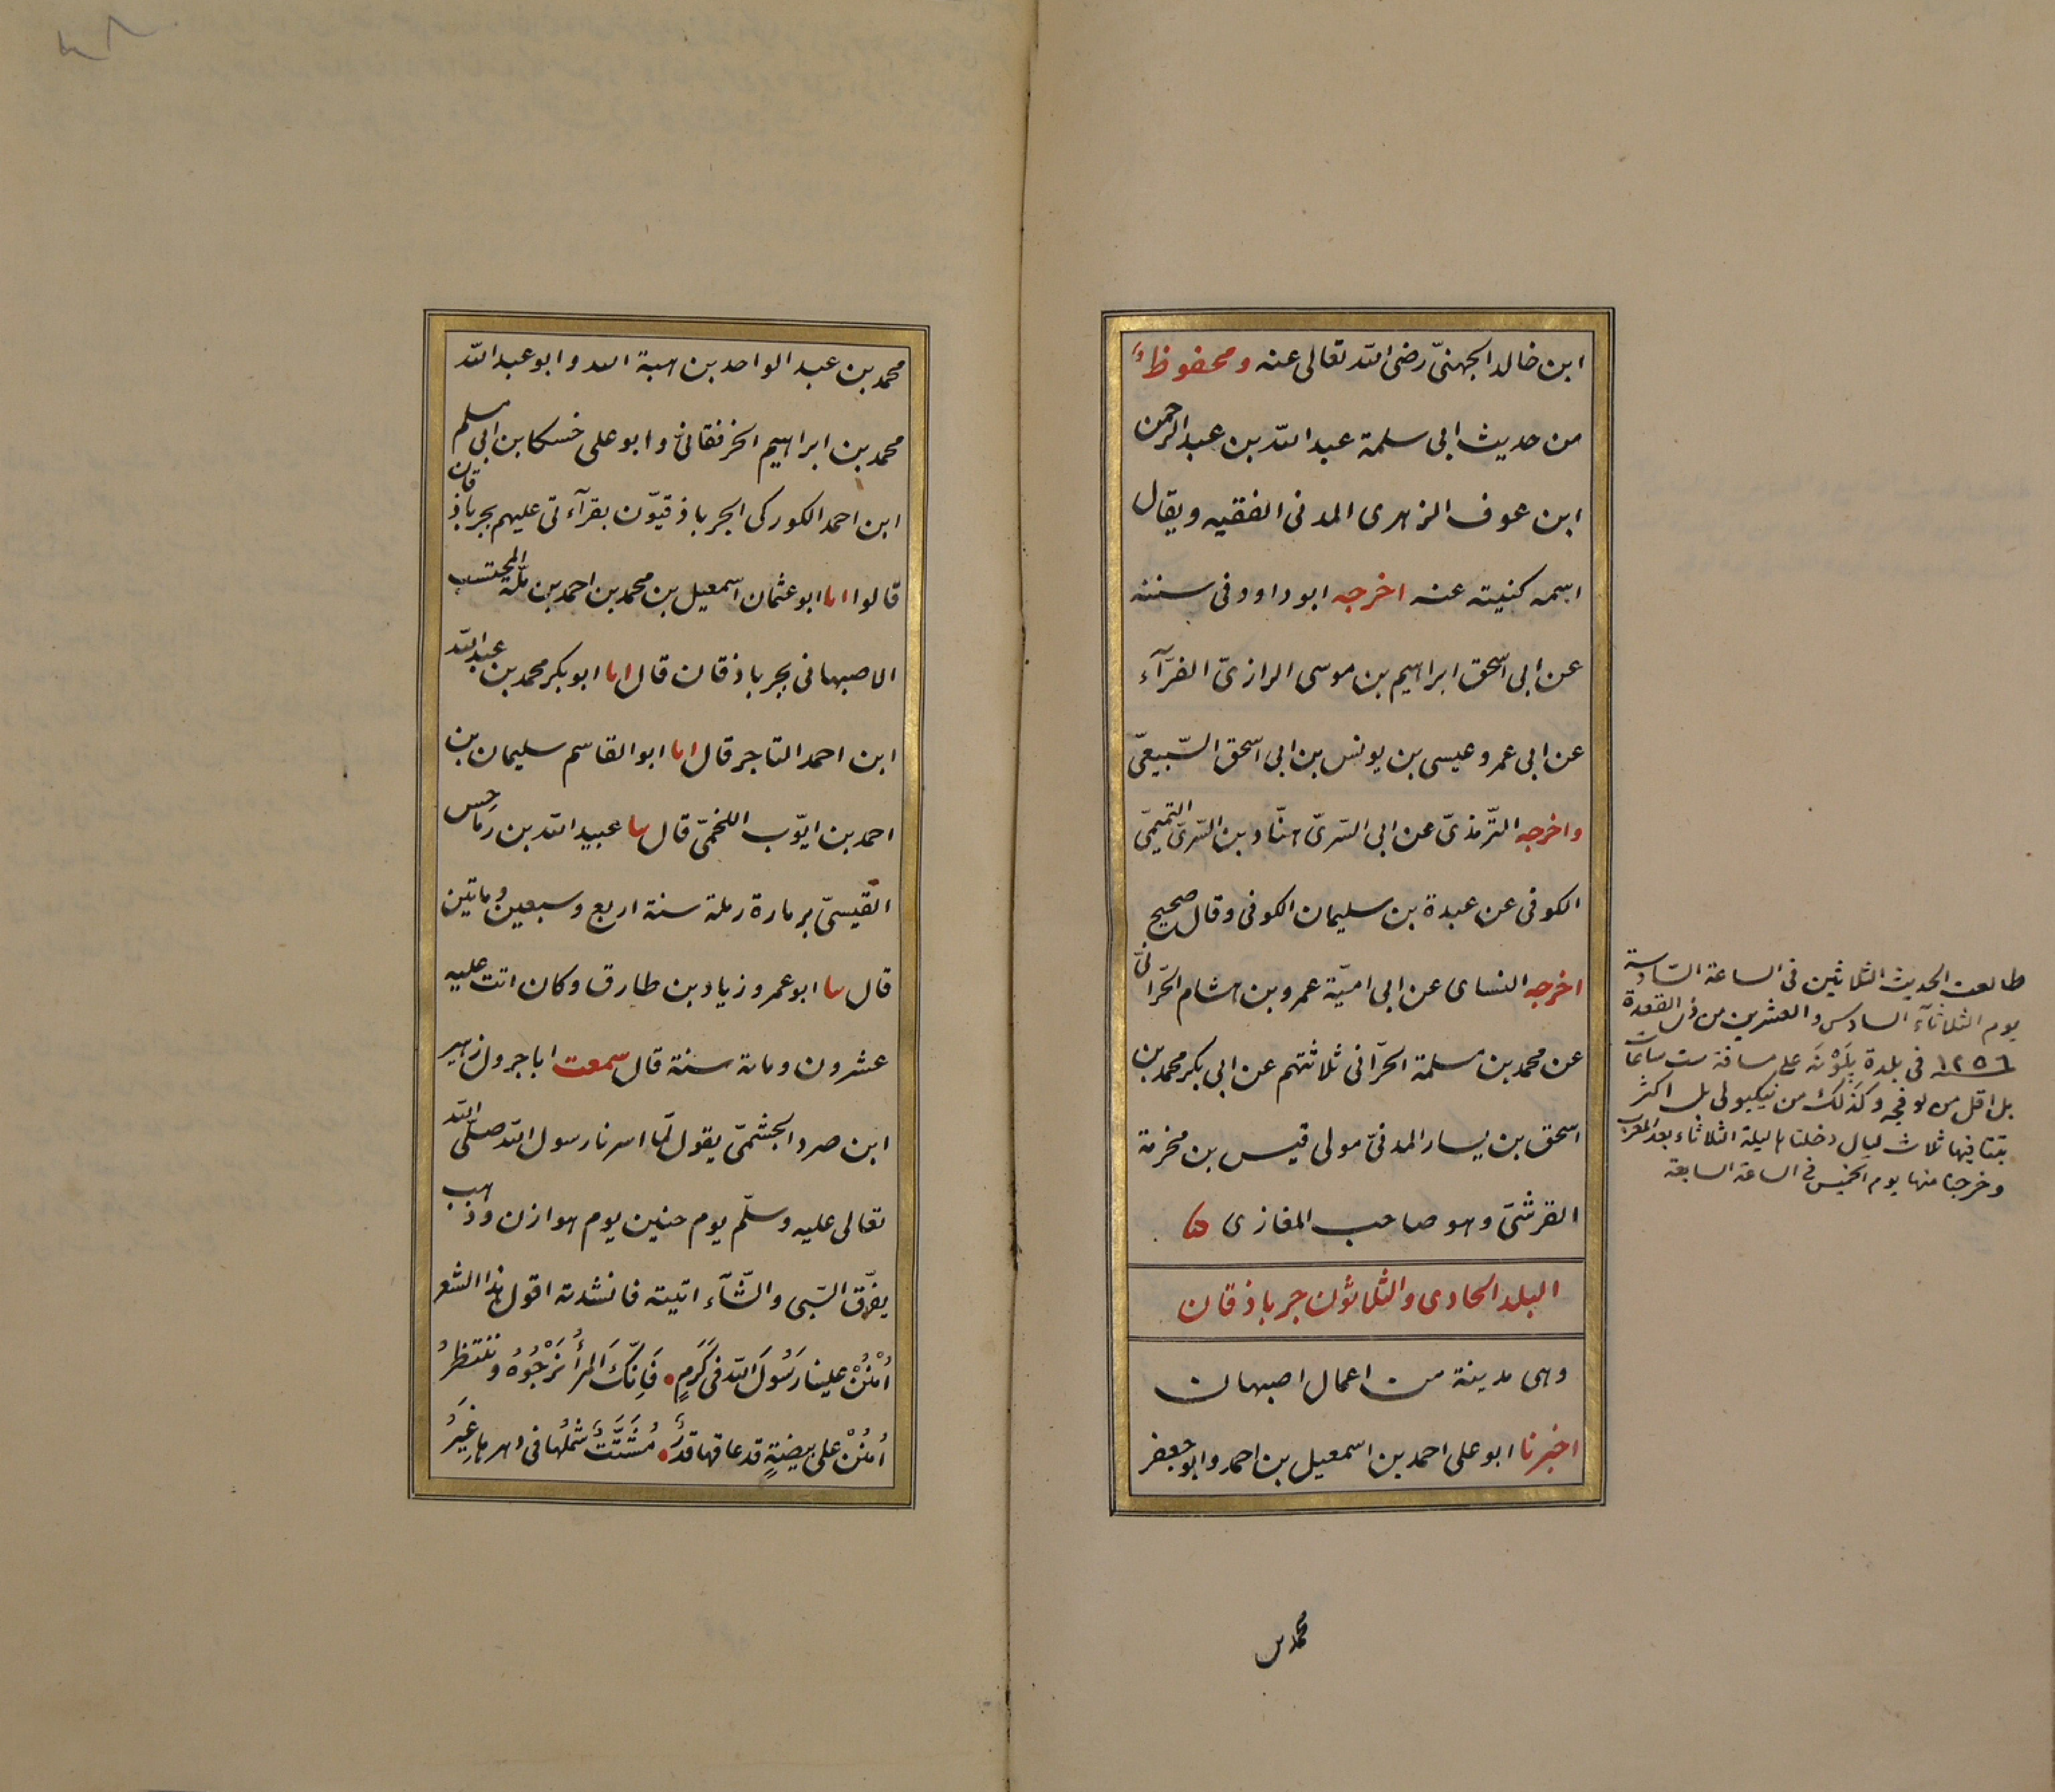 ابن خالد الجهنىّ رضى الله تعالى عنه ومحفوظاً
من حديث ابى سلمة عبد الله بن عبد الرحمن
ابن عوف الزهرى المدنى الفقيه ويقال
اسمه كنيته عنه اخرجه ابو داود فى سننه
عن ابى اسحق ابراهيم بن موسى الرازىّ الفرّآء
عن ابى عمرو عيسى بن يونس بن ابى اسحق السّبيعىّ
واخرجه التّرمذىّ عن ابى السّرىّ هنّاد بن السّرىّ التّميمىّ
الكوفى عن عبدة بن سليمان الكوفى وقال صحيح
اخرجه النساى عن ابى اميّة عمرو بن هشام الحرّانىّ
عن محمد بن سلمة الحرّانى ثلاثتهم عن ابى بكر محمد بن
اسحق بن يسار المدنىّ مولى قيس بن مخرمة
القرشىّ وهو صاحب المغازى
البلد الحادى والثلاثون جرباذقان
وهى مدينة من اعمال اصبهان
اخبرنا ابو على احمد بن اسمعيل بن احمد وابو جعفر
محمد بن
طالعت الحديث الثلاثين فى الساعة السّادسة
يوم الثلاثآء السادس والعشرين من ذى القعدة
١٢٥٦ فى بلدة پلَوْنَه على مسافة ست ساعات
بل اقل من لوفجه وكذلك من نيكبولى بل اكثر
بتنا فيها ثلاث ليال دخلناها ليلة الثلاثاء بعد المغرب
وخرجنا منها يوم الخميس فى الساعة السابعة
محمد بن عبد الواحد بن هبة الله وابو عبد الله
محمد بن ابراهيم الخرفقانى وابو على خسكا بن ابى مسلم
ابن احمد الكوركى الجرباذقيّون بقرآءتى عليهم بجرباذقان
قالوا انا ابو عثمان اسمعيل بن محمد بن احمد بن ملّة المحتسب
الاصبهانى بجرباذقان قال انا ابو بكر محمد بن عبد الله
ابن احمد التاجر قال انا ابو القاسم سليمان بن
احمد بن ايّوب اللخمىّ قال نا عبيد الله بن رماحس
القيسىّ برمادة رملة سنة اربع وسبعين وماتين
قال نا ابو عمرو زياد بن طارق وكان اتت عليه
عشرون وماىة سنة قال سمعت ابا جرول زهير
ابن صرد الجشمىّ يقول لمّا اسرنا رسول الله صلّى الله
تعالى عليه وسلّم يوم حنين يوم هوازن وذهب
يفرّق السّبى والشّآء اتيته فانشدته اقول هذا الشعر
اُمْنُنْ علينا رَسُولَ الله فى كَرَمٍ • فَاِنّكَ المرأُ نَرْجُوْهُ وننتظرُ
اُمْنُنْ على بيضةٍ قد عاقها قدرٌ • مُشَتَّتٌ شملُها فى دهرها غِيَرُ